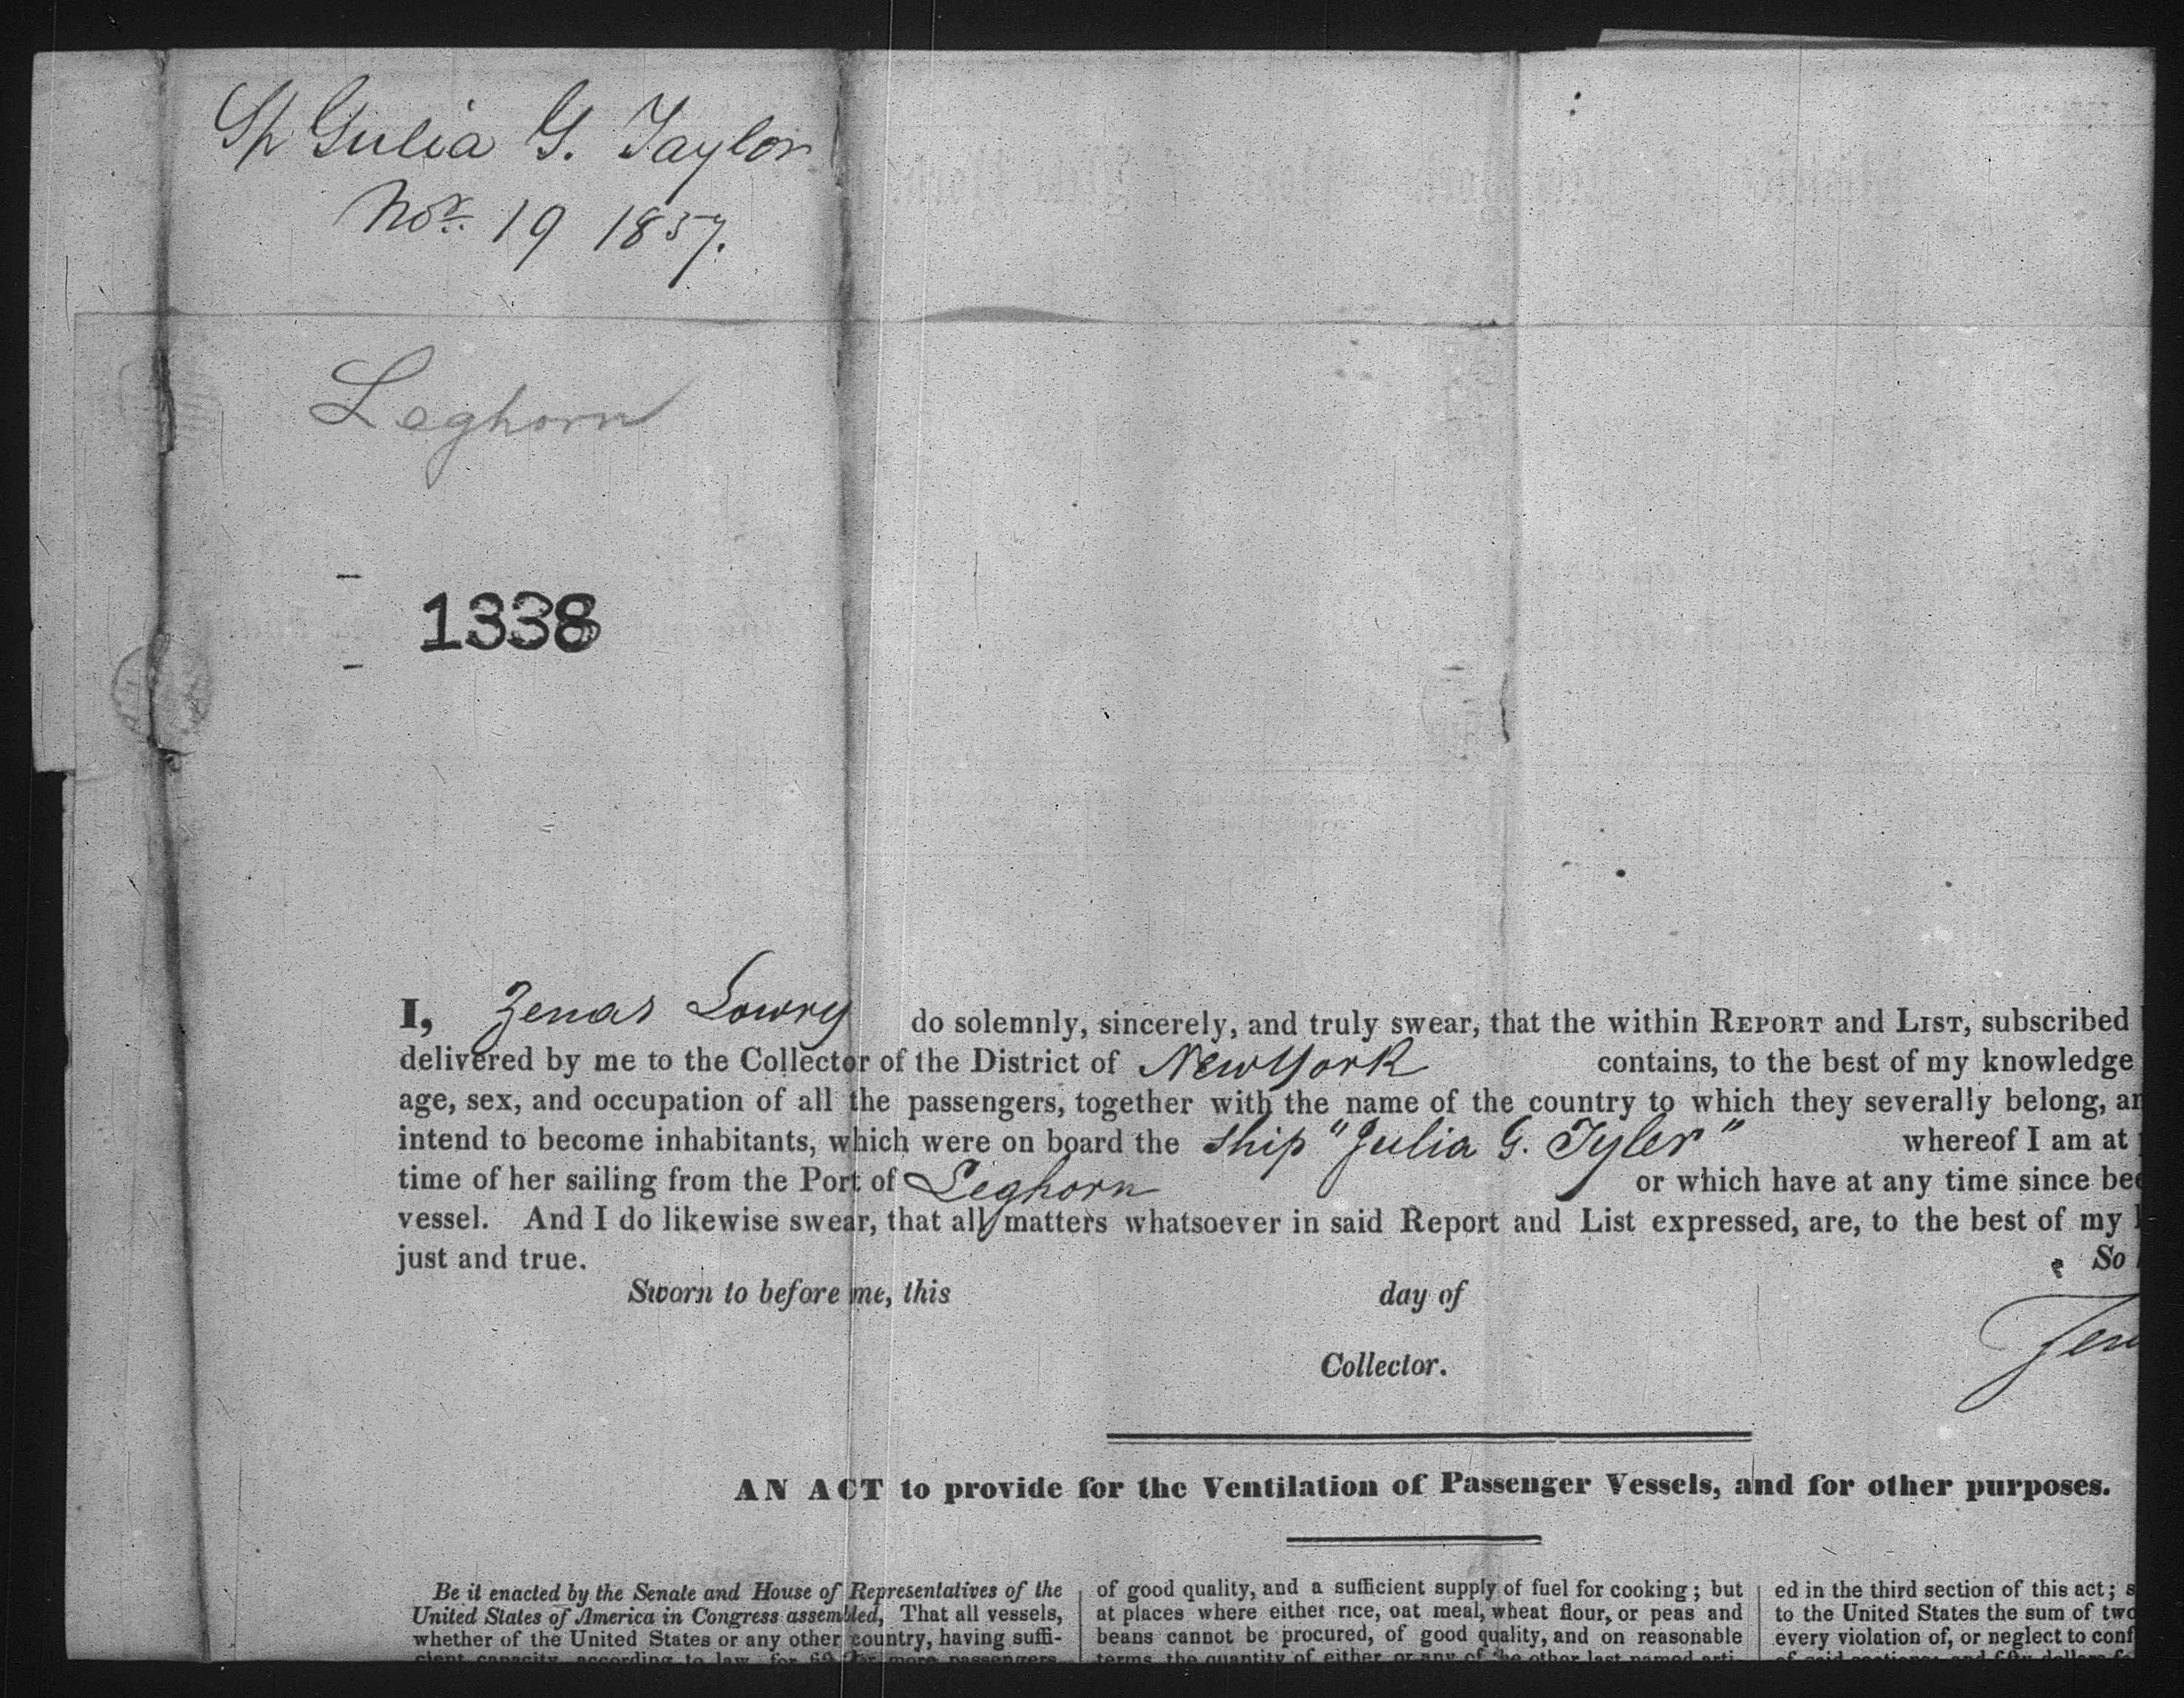 Sp Gulia G. Taylor
Nov. 19 1857.
Leghorn
1338
I, Zenas Lowry do solemnly, sincerely, and truly swear, that the within REPORT and LIST, subscribed
delivered by me to the Collector of the District of New York contains, to the best of my knowledge
age, sex, and occupation of all the passengers, together with the name of the country to which they severally belong, an
intend to become inhabitants, which were on board the Ship "Julia G. Tyler" whereof I am at
time of her sailing from the Port of Leghorn or which have at any time since bee
vessel. And I do likewise swear, that all matters whatsoever in said Report and List expressed, are, to the best of my
just and true. So
Sworn to before me, this day of
Zen
Collector.
AN ACT to provide for the Ventilation of Passenger Vessels, and for other purposes.
Be it enacted by the Senate and House of Representatives of the
United States of America in Congress assembled, That all vessels,
whether of the United States or any other country, having suffi-
cient capacity, according to law, for 50 or more passengers,
of good quality, and a sufficient supply of fuel for cooking; but
at places where either rice, oat meal, wheat flour, or peas and
beans cannot be procured, of good quality, and on reasonable
terms, the quantity of either or any of the other last named arti-
ed in the third section of this act; s
to the United States the sum of two
every violation of, or neglect to conf
of said sections; and fifty dollars